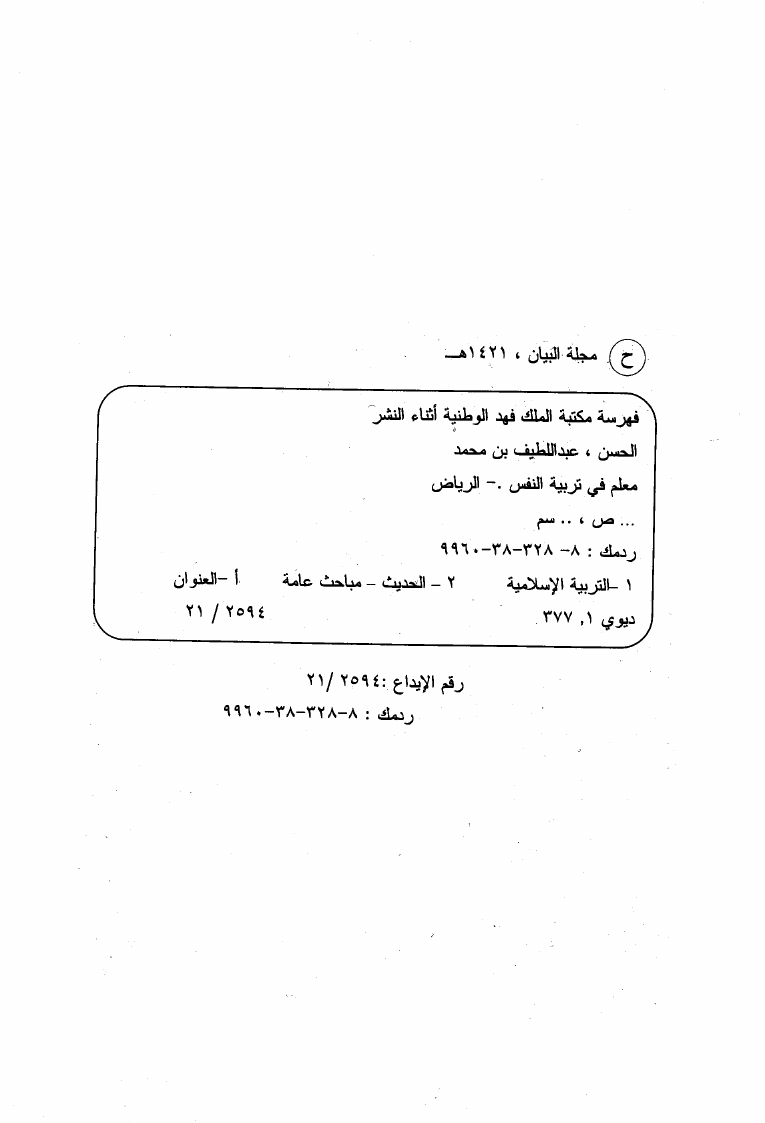 ح مجلة البيان ، ١٤٢١هـ
فهرسة مكتبة الملك فهد الوطنية أثناء النشر
الحسن ، عبداللطيف بن محمد
معلم في تربية النفس .- الرياض
... ص ، .. سم
ردمك : ٨- ٣٢٨-٣٨-٩٩٦٠
١ -التربية الإسلامية ٢ - الحديث - مباحث عامة أ -العنوان
ديوي ٣٧٧,١ ٢٥٩٤ / ٢١
رقم الإيداع :٢٥٩٤ /٢١
ردمك : ٨-٣٢٨-٣٨-٩٩٦٠